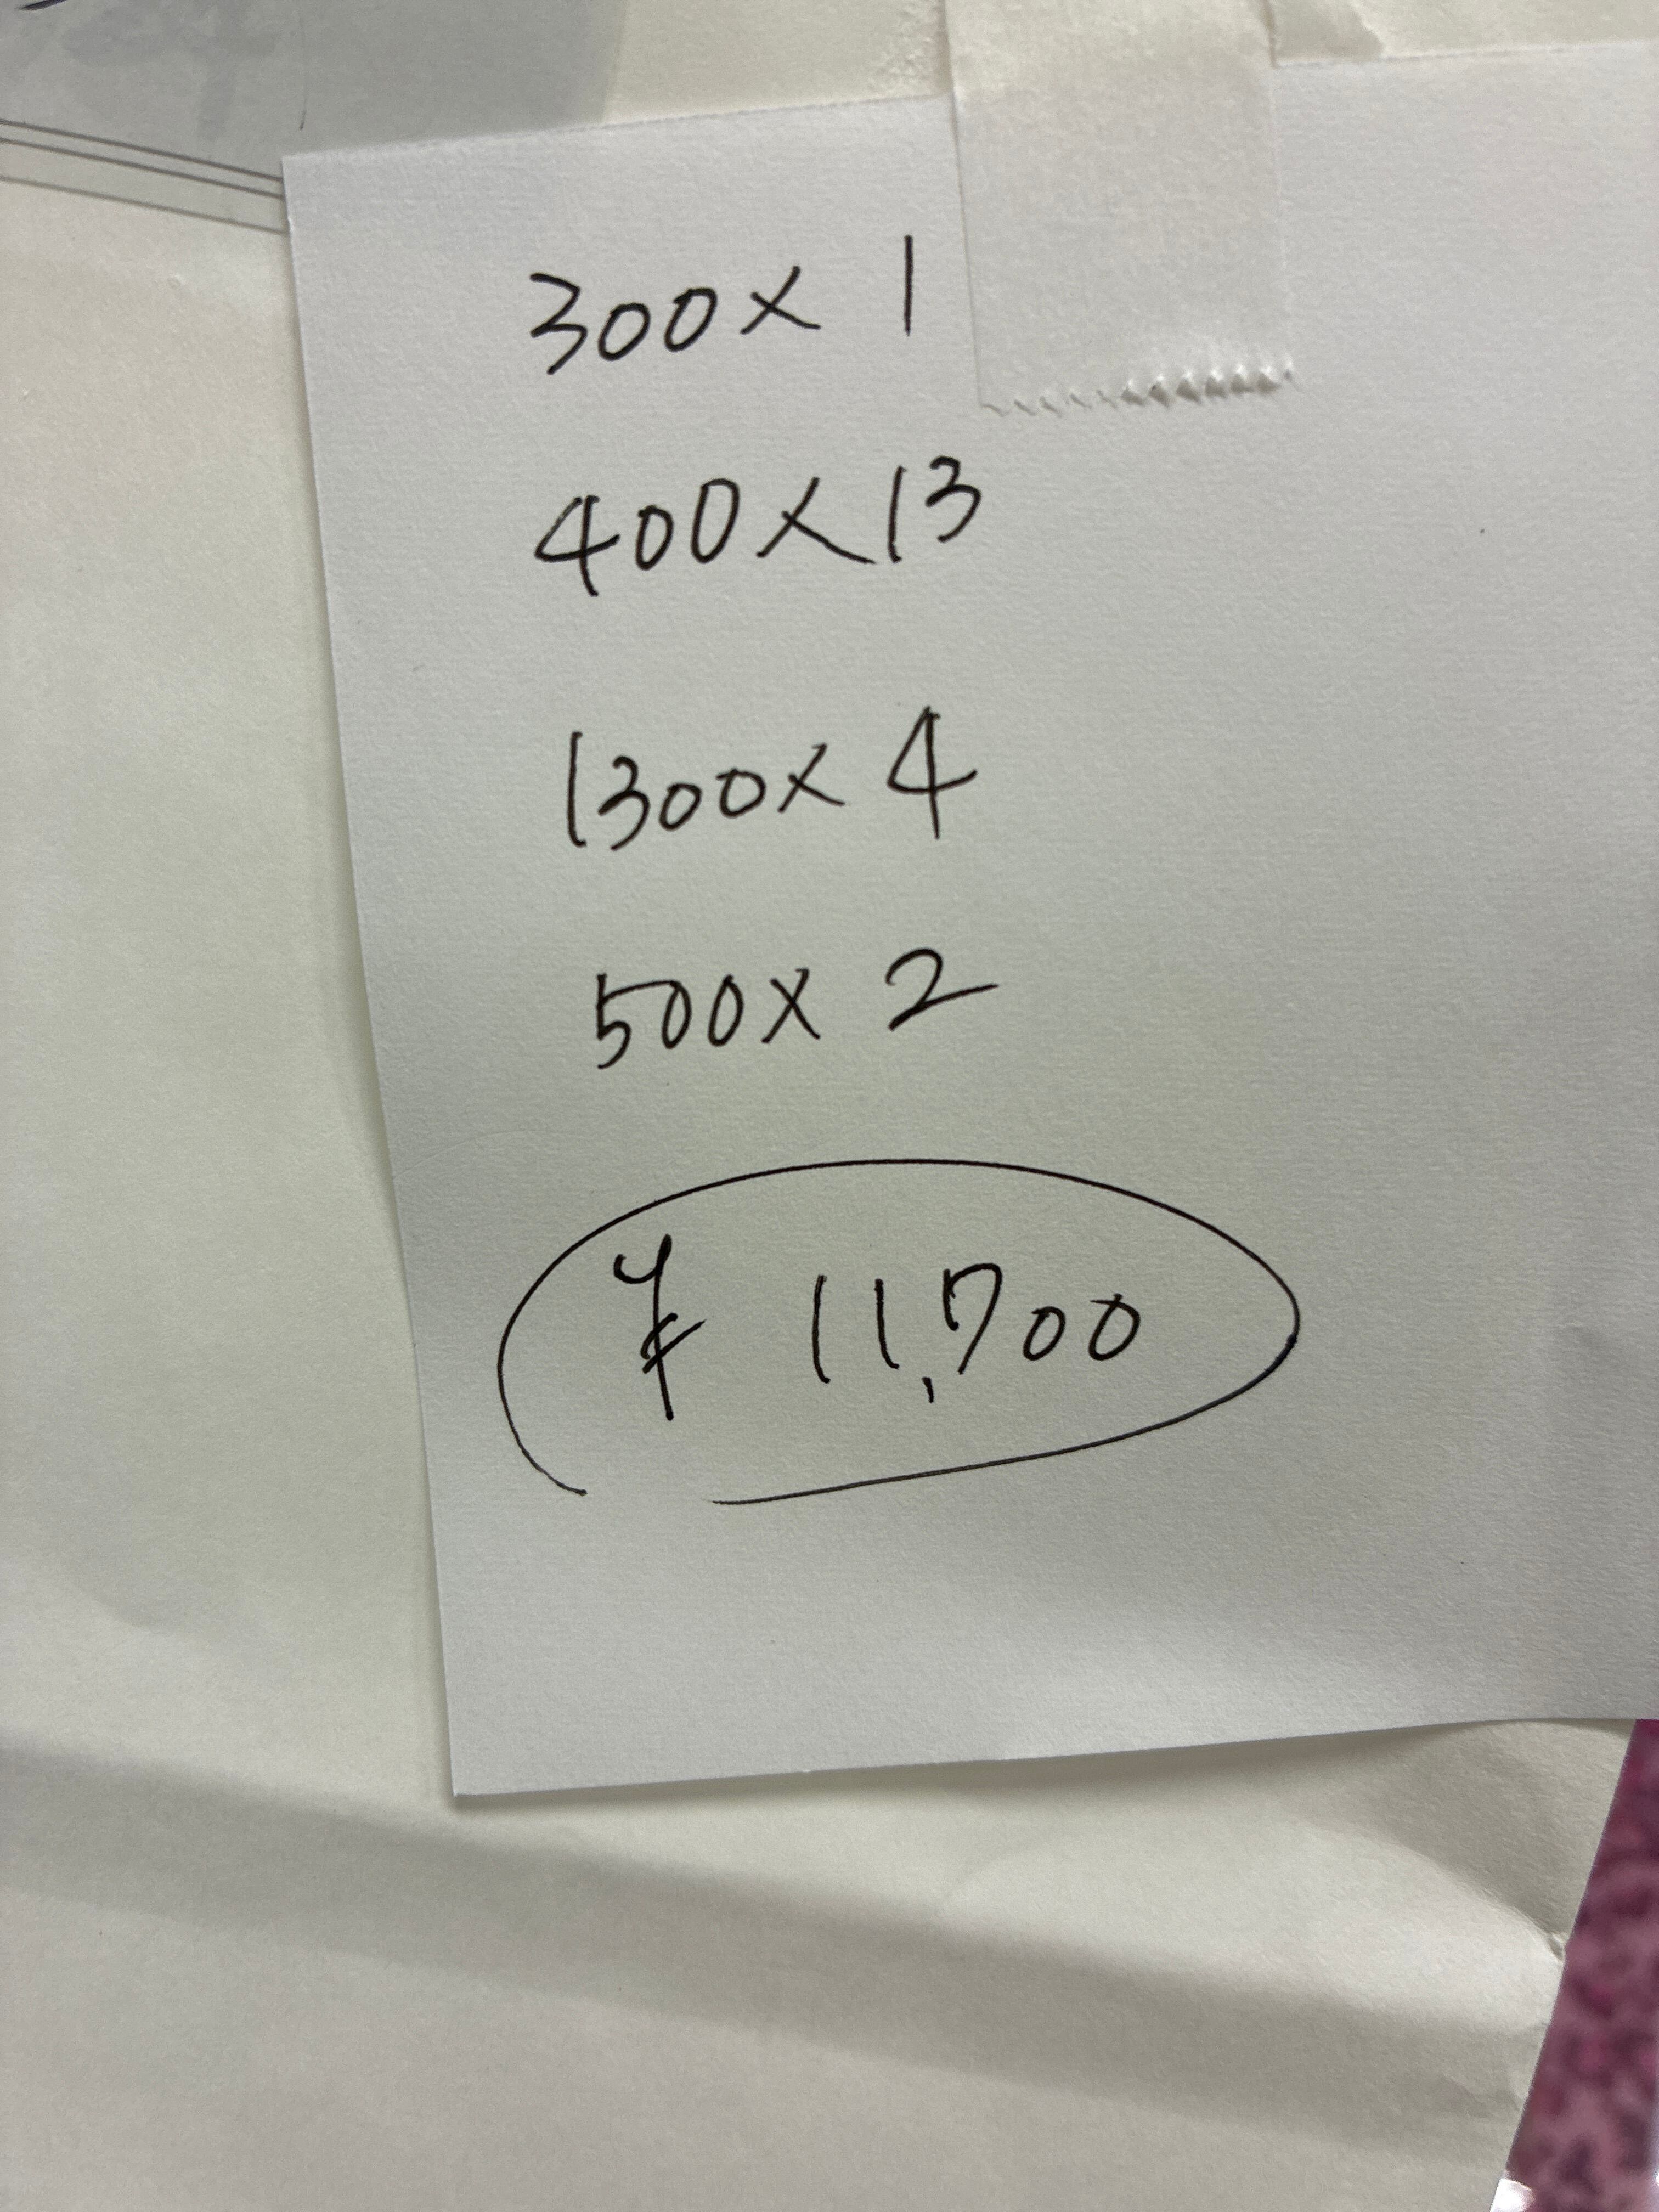 300× 1
400×13
1300× 4
500× 2
¥ 11,700